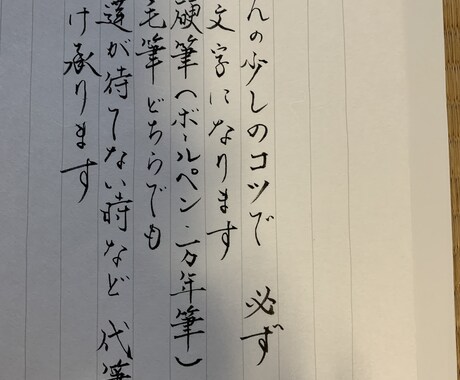 んの少しのコツで 必ず
文字になります
硬筆（ボールペン・万年筆）
毛筆どちらでも
が待てない時など 代筆
け承ります